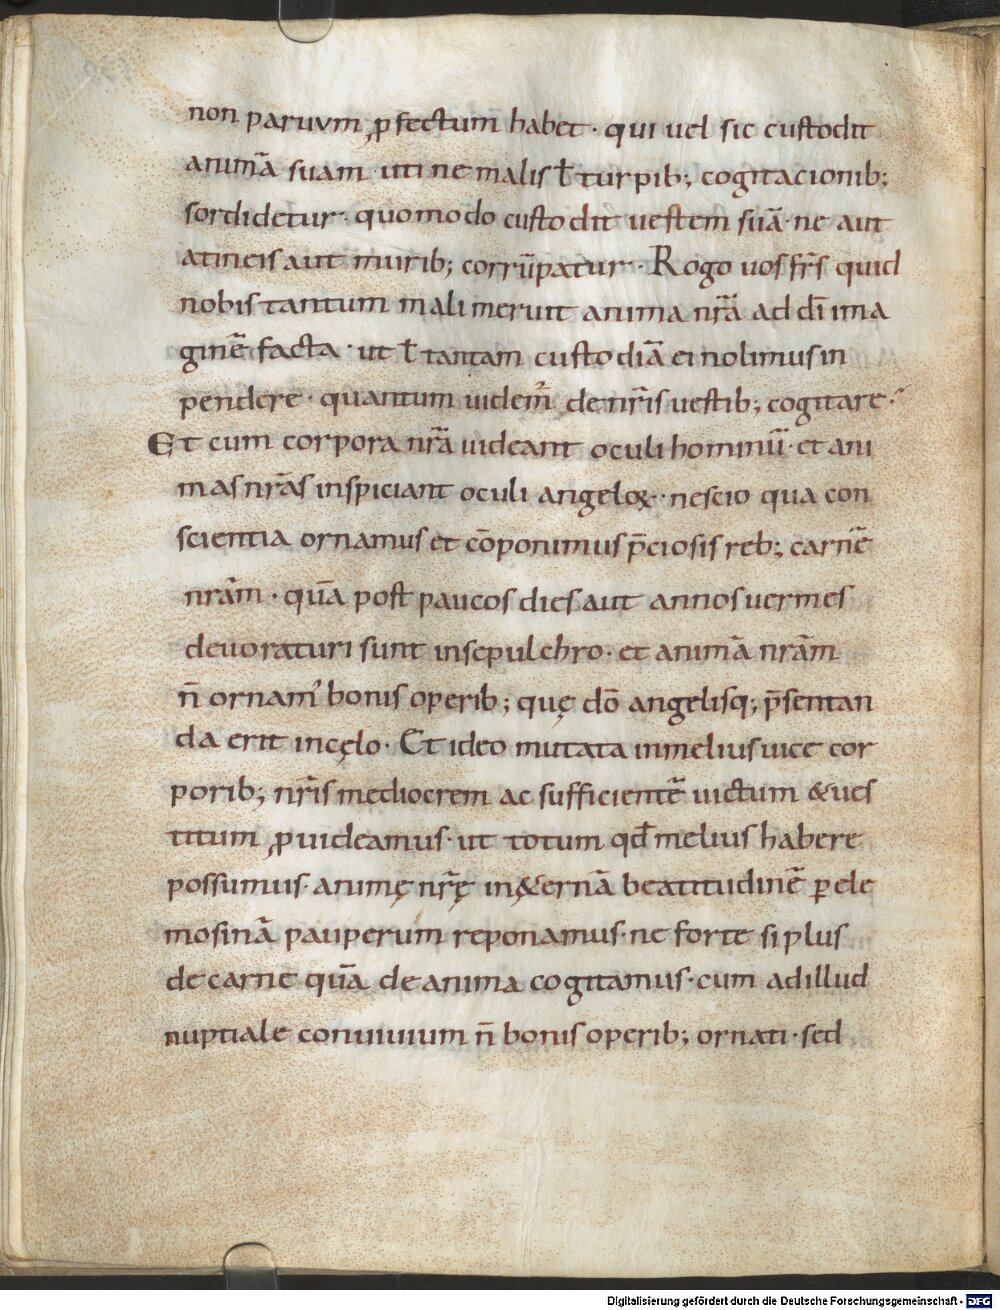 non paruum ꝓfectum habet · qui uel sic custodit
animā suam · uti ne malis ł turpib; cogitacionib;
sordidetur · quomodo custodit uestem suā · ne aut
atineis aut murib; corrūpatur · Rogo uos fr̄s quid
nobis tantum mali meruit anima nr̄a ad dī ima
ginē facta · ut ł tantam custodiā ei nolimus in
pendere · quantum uidem᷒ de nr̄is uestib; cogitare ·
Et cum corpora nr̄a uideant oculi hominū · et ani
mas nr̄as inspiciant oculi angeloꝝ · nescio qua con
scientia ornamus et cōponimus p̄ciosis reb; carnē
nrām · quā post paucos dies aut annos uermes
deuoraturi sunt insepulchro · et animā nrām
n̄ ornam᷒ bonis operib; quę dō angelisq; p̄sentan
da erit incęlo · Et ideo mutata inmelius uice cor
porib; nr̄is mediocrem ac sufficientē uictum & ues
titum ꝓuideamus · ut totum qd̄ melius habere
possumus · animę nr̄ę in&ernā beatitudinē ꝑ ele
mosinā pauperum reponamus · ne forte si plus
de carne quā de anima cogitamus · cum adillud
nuptiale conuiuium n̄ bonis operib; ornati · sed
Digitalisierung gefördert durch die Deutsche Forschungsgemeinschaft - DFG